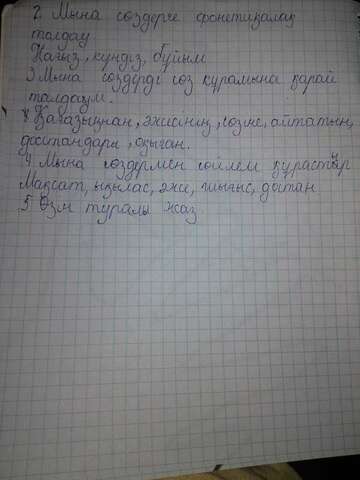 2. Мына сөздерге фонетикалық
талдау
Нағыз, күндіз, бұйым
3 Мына сөзderді сөз құрамына қарай
талдаңм.
Қағазыңнан, әжесінің, сөзме, айтатын,
достандары, оқыған.
4 Мына сөздермен сөйлем құрастыр
Мақсат, ықылас, әже, шығыс, достан
5 Өзм туралы жаз